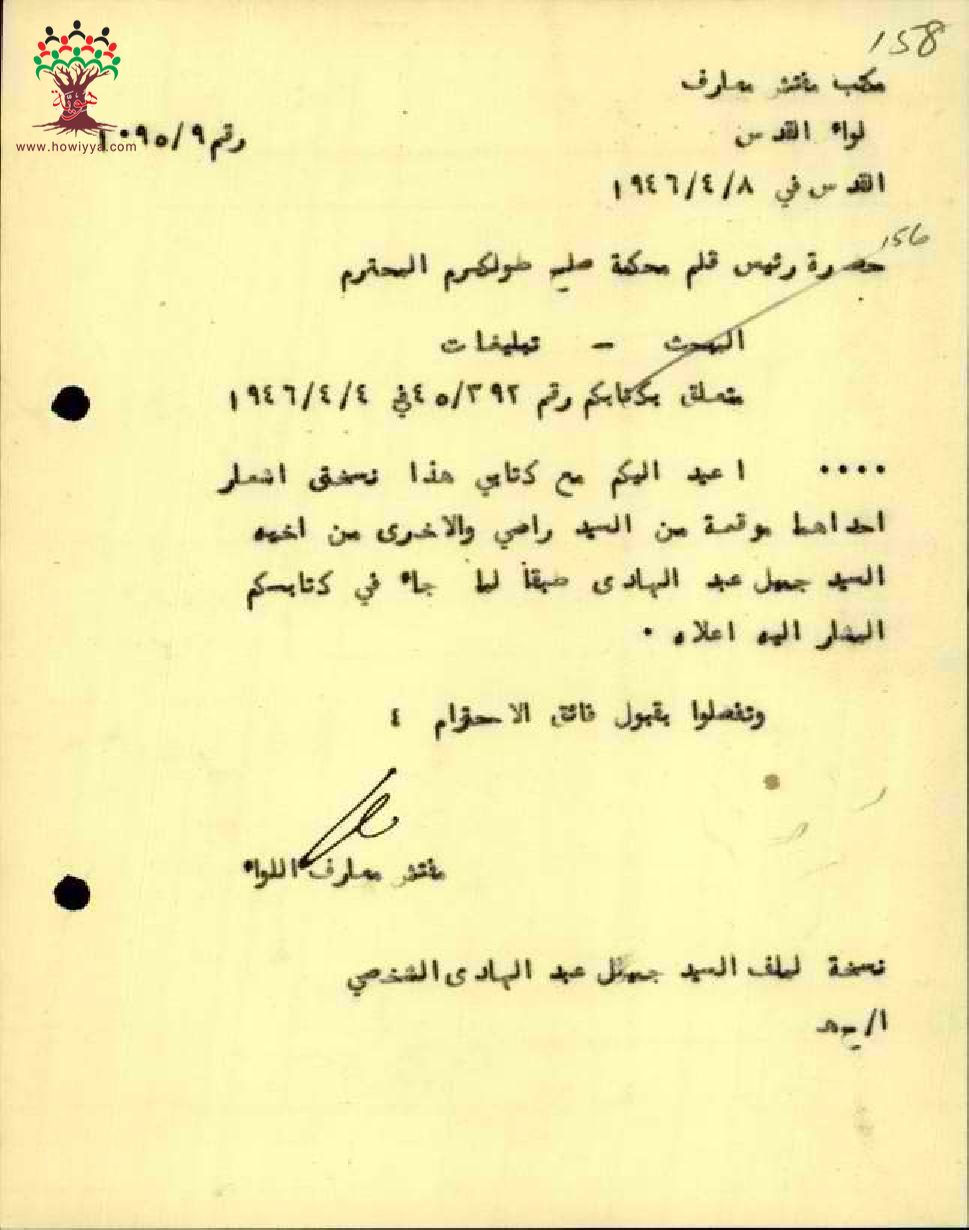 158
مكتب مفتش معارف
لواء القدس
رقم ١٠٩٥/٩
هوية
www.howiyya.com
القدس في ١٩٤٦/٤/٨
156
حضرة رئيس قلم محكمة صلح طولكرم المحترم
البحث - تبليغات
متعلق بكتابكم رقم ٤٥/٣٩٢ في ١٩٤٦/٤/٤
.... اعيد اليكم مع كتابي هذا نسختى اشعار
احداهما موقعة من السيد راضي والاخرى من اخيه
السيد جميل عبد الهادى طبقا لما جاء في كتابكم
المشار اليه اعلاه .
وتفضلوا بقبول فائق الاحترام ،
مفتش معارف اللواء
نسخة لملف السيد جميل عبد الهادى الشخصي